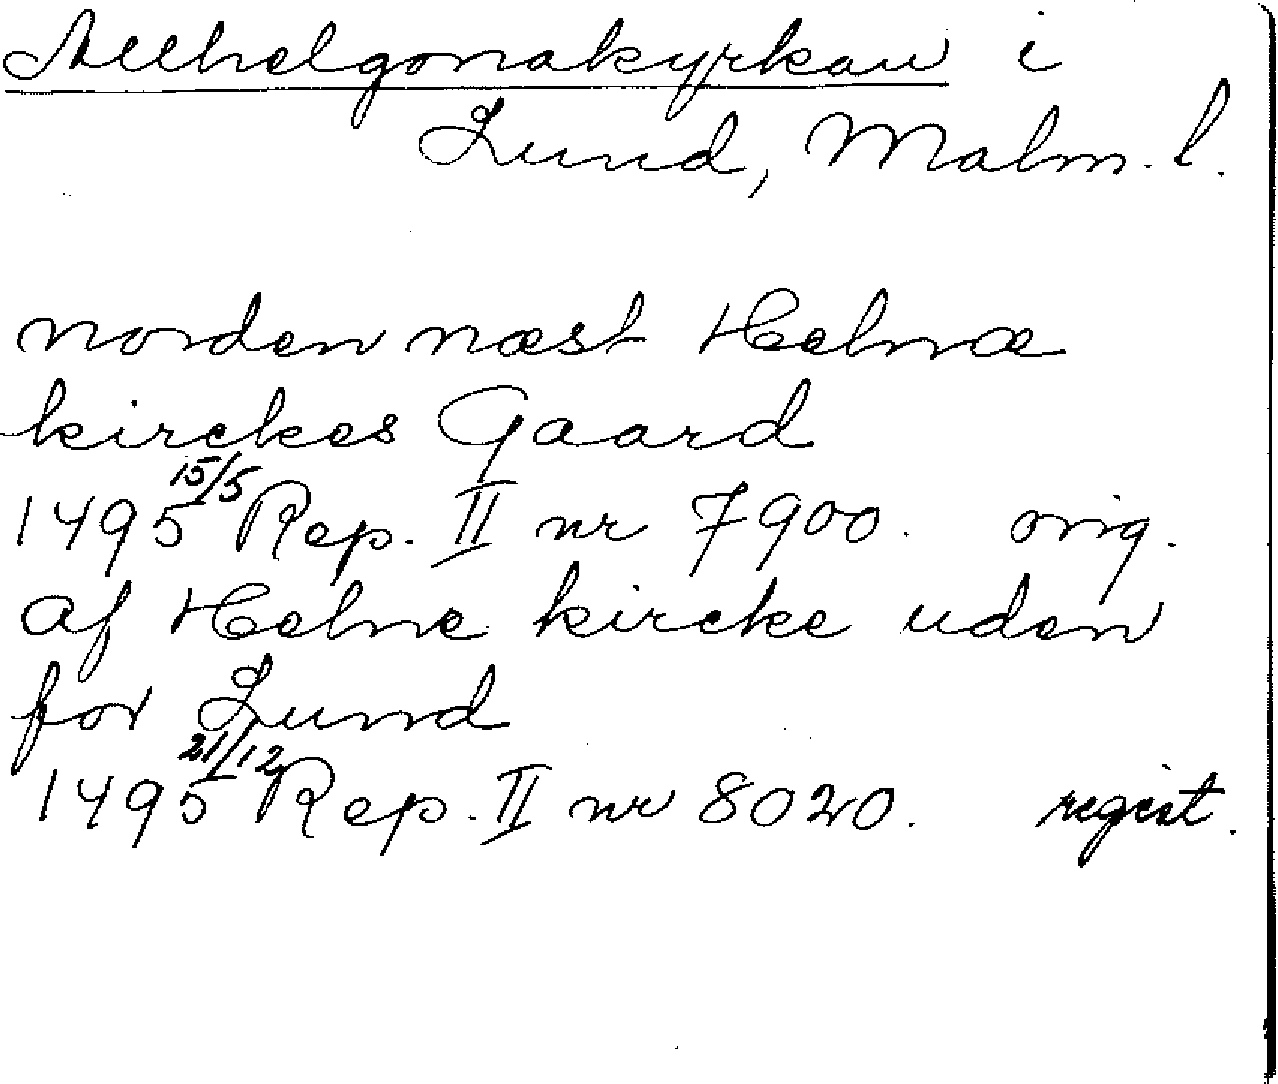 Allhelgonakyrkan i
Lund, Malm. l.
norden næst Helmæ
kirckes Gaard
1495 15/5 Rep. II nr 7900. orig.
af Helme kircke uden
for Lund
1495 21/12 Rep. II nr 8020. regist.